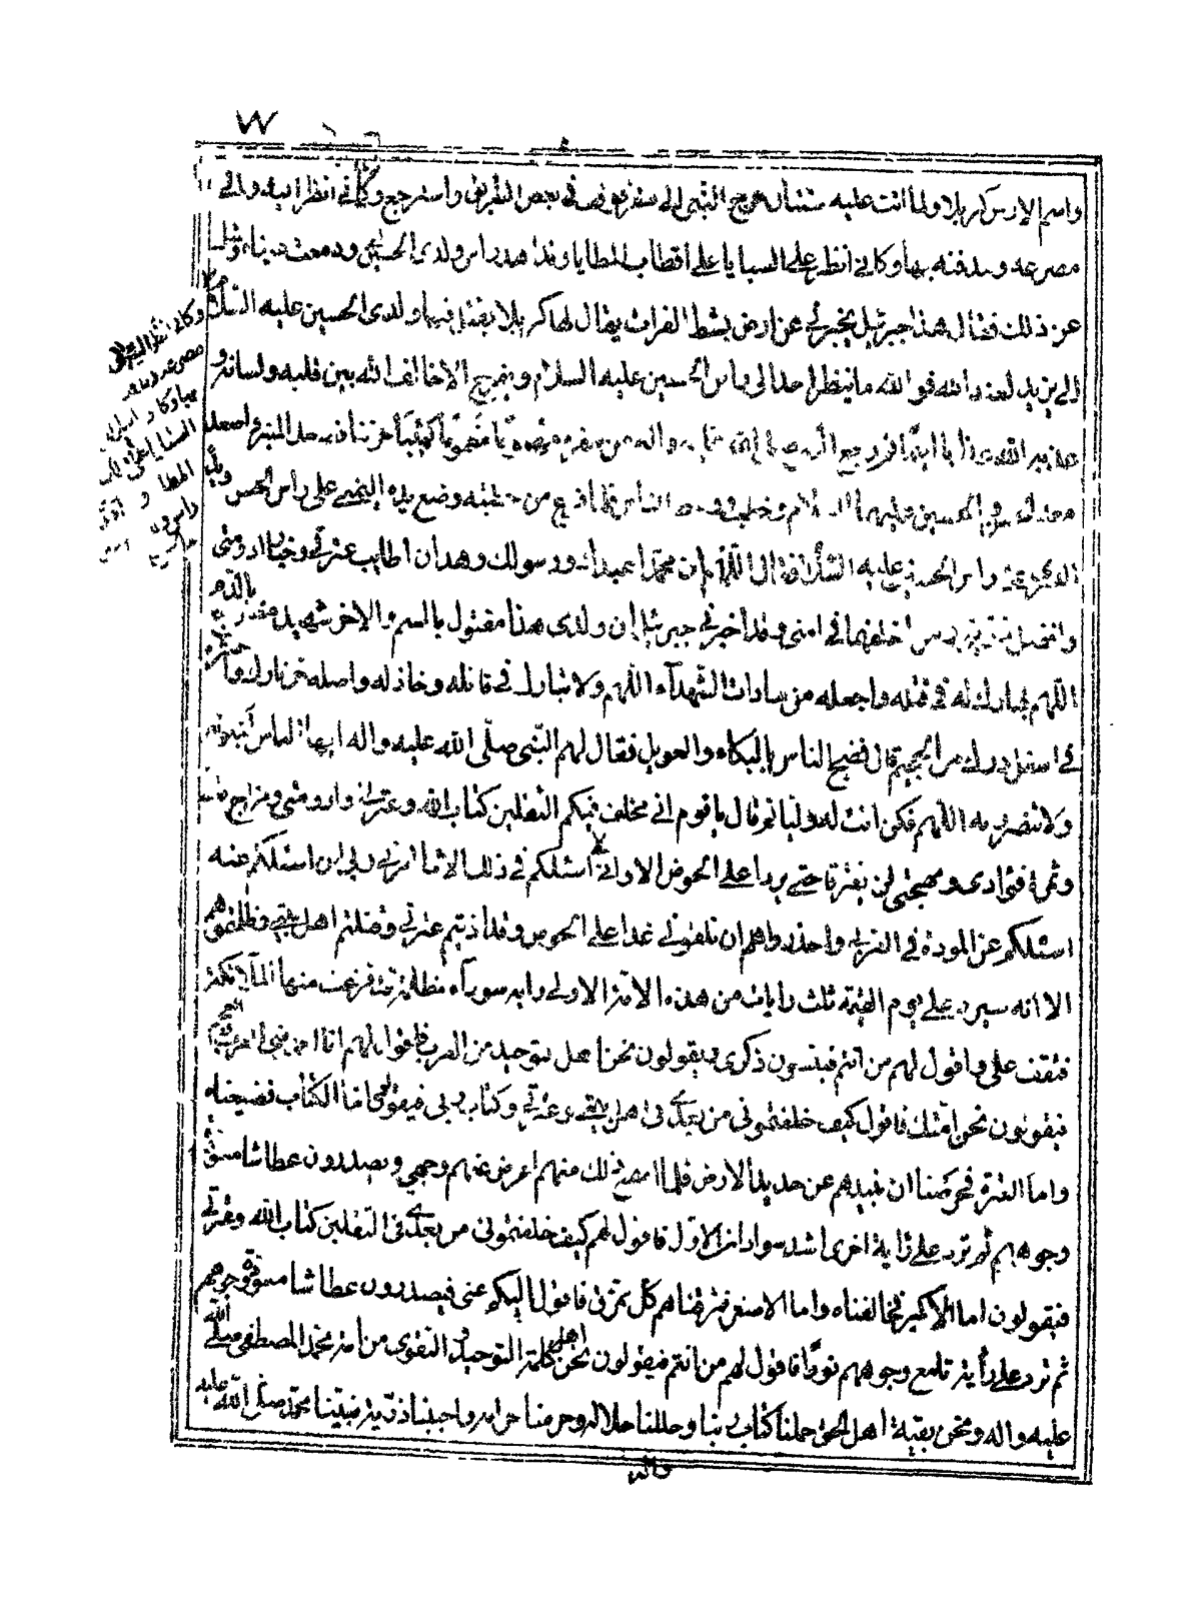 ٧٧
واسم الارض كربلا ولما اتت عليه سنتان خرج النبى الى سفر فوقف فى بعض الطريق واسترجع وكانى انظر اليه والى
مصرعه ومدفنه بها وكانى انظر على السبايا على اقطاب المطايا وقد اهدى راس ولدى الحسين ودمعت عيناه وسئل
عن ذلك فقال هذا جبرئيل يخبرنى عن ارض بشط الفرات يقال لها كربلا يقتل فيها ولدى الحسين عليه السلام
الى يزيد لعنه الله فو الله ما ينظر احد الى راس الحسين عليه السلام ويفرح الا خالف الله بين قلبه ولسانه و
عذبه الله عذابا اليما ثم رجع النبى من سفره مغموما مهموما كئيبا حزينا فصعد المنبر واصعد
معه الحسن والحسين عليهما السلام وخطب ووعظ الناس فلما فرغ من خطبته وضع يده اليمنى على راس الحسن
اليسرى على راس الحسين عليه السلام فقال اللهم ان محمدا عبدك ورسولك وهذان اطايب عترتى وخيار ارومتى
وافضل ذريتى ومن اخلفهما فى امتى وقد اخبرنى جبرئيل ان ولدى هذا مقتول بالسم والاخر شهيد مضرج بالدم
اللهم فبارك له فى قتله واجعله من سادات الشهدآء اللهم ولا تبارك فى قاتله وخاذله واصله حر نارك واحشره
فى اسفل درك من الجحيم قال فضج الناس بالبكاء والعويل فقال لهم النبى صلى الله عليه واله ايها الناس اتبكونه
ولا تنصرونه اللهم فكن انت له وليا ثم قال يا قوم انى مخلف فيكم الثقلين كتاب الله وعترتى وارومتى ومزاج مائى
وثمرة فؤادى ومهجتى لن يفترقا حتى يردا على الحوض الا وانى لا اسئلكم فى ذلك الا ما امرنى ربى ان اسئلكم عنه
اسئلكم عن المودة فى القربى واحذروا ان تلقونى غدا على الحوض وقد اذيتم عترتى وقتلتم اهل بيتى وظلمتموهم
الا انه سيرد على يوم القيمة ثلث رايات من هذه الامة الاولى راية سودآء مظلمة قد فزعت منها الملائكة
فتقف على واقول لهم من انتم فينسون ذكرى ويقولون نحن اهل التوحيد من العرب فاقول لهم انا احمد نبى العرب والعجم
فيقولون نحن امتك فاقول كيف خلفتمونى من بعدى فى اهل بيتى وعترتى وكتاب ربى فيقولون اما الكتاب فضيعناه
واما العترة فحرصنا ان نبيدهم عن جديد الارض فلما اسمع ذلك منهم اعرض عنهم وجهى فيصدرون عطاشا مسودة
وجوههم ثم ترد على راية اخرى اشد سوادا من الاولى فاقول لهم كيف خلفتمونى من بعدى فى الثقلين كتاب الله وعترتى
فيقولون اما الاكبر فخالفناه واما الاصغر فمزقناهم كل ممزق فاقول اليكم عنى فيصدرون عطاشا مسودة وجوههم
ثم ترد على راية تلمع وجوههم نورا فاقول لهم من انتم فيقولون نحن اهل كلمة التوحيد والتقوى من امة محمد المصطفى صلى الله
عليه واله ونحن بقية اهل الحق حملنا كتاب ربنا وحللنا حلاله وحرمنا حرامه واحببنا ذرية نبينا محمد صلى الله عليه
واله
وكانى انظر اليه والى
مصرعه ومدفنه
بها وكانى انظر
السبايا على
المطايا وقد
راس ولدى